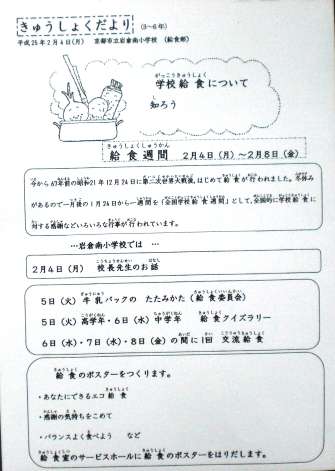 きゅうしょくだより (3~6年)
平成25年2月4日(月) 京都市立岩倉南小学校 (給食部)
がっこうきゅうしょく
学校給食について
知ろう
きゅうしょくしゅうかん
給食週間 2月4日(月)~2月8日(金)
今から67年前の昭和21年12月24日に第二次世界大戦後、はじめて給食が行われました。冬休み
があるので一月後の1月24日から一週間を「全国学校給食週間」として、全国的に学校給食に
対する感謝などいろいろな行事が行われています。
…岩倉南小学校では …
こうちょうせんせい はなし
2月4日(月) 校長先生のお話
5日(火) 牛乳パックの たたみかた(給食委員会)
5日(火)高学年・6日(水)中学年 給食クイズラリー
6日(水)・7日(水)・8日(金)の間に1回 交流給食
きゅうしょく
給食のポスターをつくります。
・あなたにできるエコ給食
・感謝の気持ちをこめて
・バランスよく食べよう など
給食室のサービスホールに給食のポスターをはりだします。